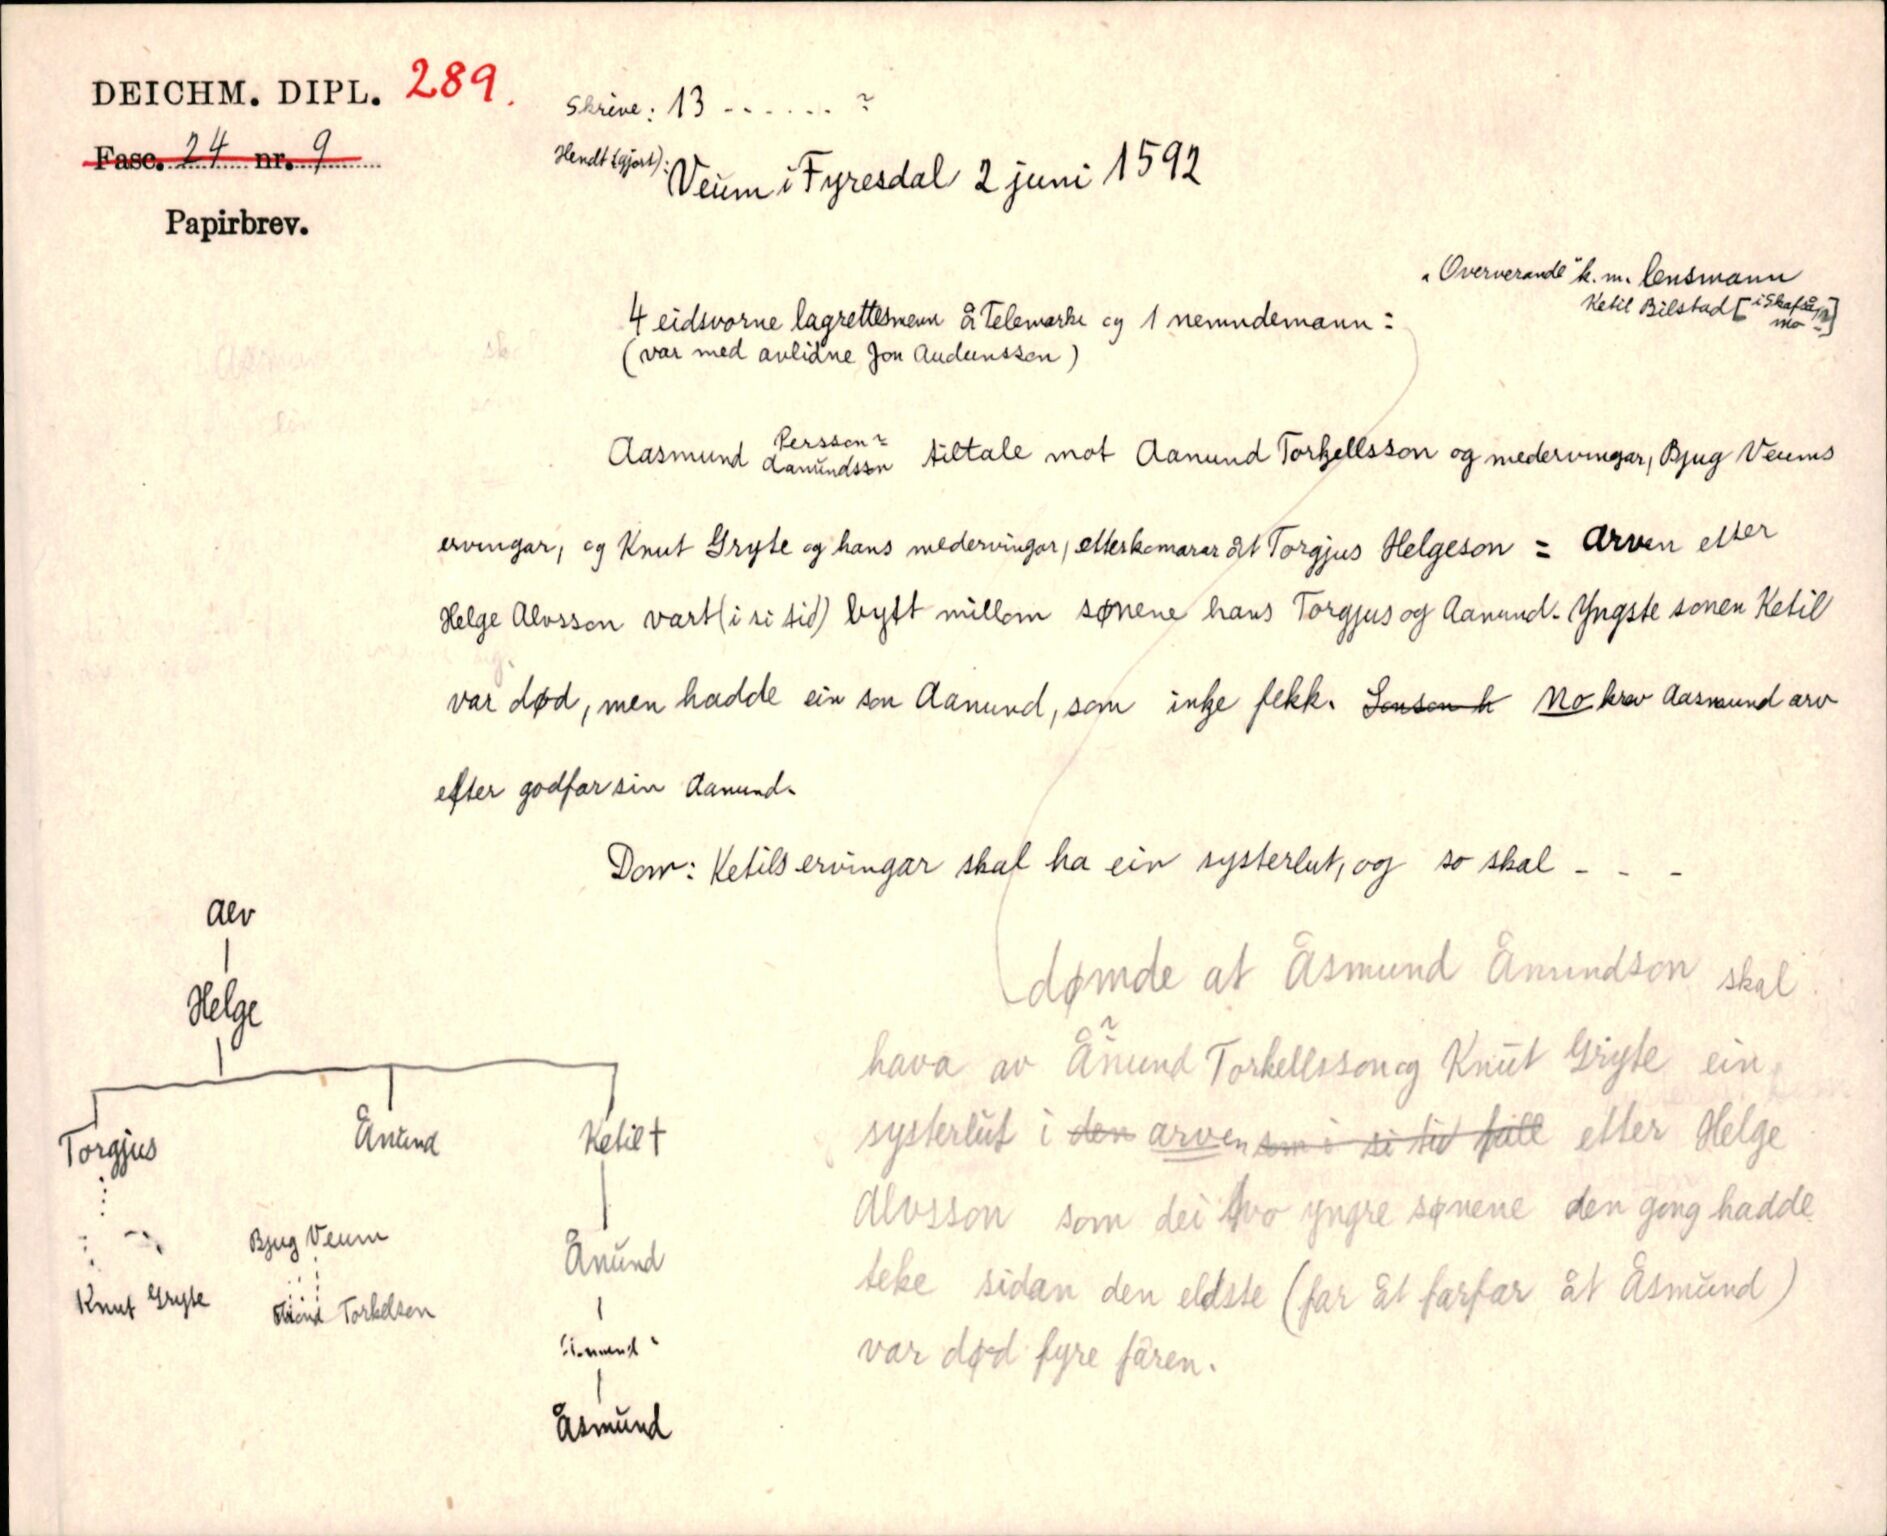 DEICHM. DIPL. 289.
Fasc. 24 nr. 9
Papirbrev.
Skrive: 13 - - - - - - ?
Hendt (gjort): Veum i Fyresdal 2 juni 1592
"Oververande" k. m. lensmann
Ketil Bilstad [i Skafså, Mo ?]
4 eidsvorne lagrettesmenn å Telemarke og 1 nemndemann:
(var med avlidne Jon Audunsson)
Persson?
Aasmund Aanundssn tiltale mot Aanund Torkellsson og medervingar, Bjug Veums
ervingar, og Knut Gryte og hans medervingar, etterkomarar åt Torgjus Helgeson = Arven etter
Helge Alvsson vart (i si tid) bytt millom sønene hans Torgjus og Aanund. Yngste sonen Ketil
var død, men hadde ein son Aanund, som inkje fekk. Sonson h No krev Aasmund arv
efter godfar sin Aanund.
Dom: Ketils ervingar skal ha ein systerlut, og so skal - - -
dømde at Åsmund Ånundson skal
hava av Ånund Torkellsson og Knut Gryte ein
systerlut i den arven som i si tid fall etter Helge
Alvsson som dei tvo yngre sønene den gong hadde
teke sidan den eldste (far åt farfar åt Åsmund)
var død fyre fåren.
Alv
Helge
Torgjus Ånund Ketil †
Bjug Veum
Ånund
Knut Gryte Torkelson
Åsmund